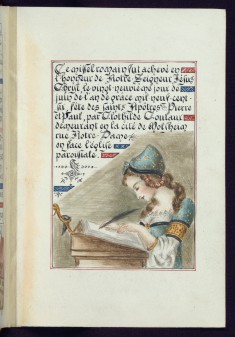 Ce missel romain fut achevé en
l'honneur de Notre Seigneur Jésus
Christ, le vingt neuvième jour de
juin de l'an de grâce mil neuf cent
six, fête des saints Apôtres Pierre
et Paul, par Clothilde Coulaux
demeurant en la cité de Molsheim
rue Notre-Dame
en face l'église
paroissiale.